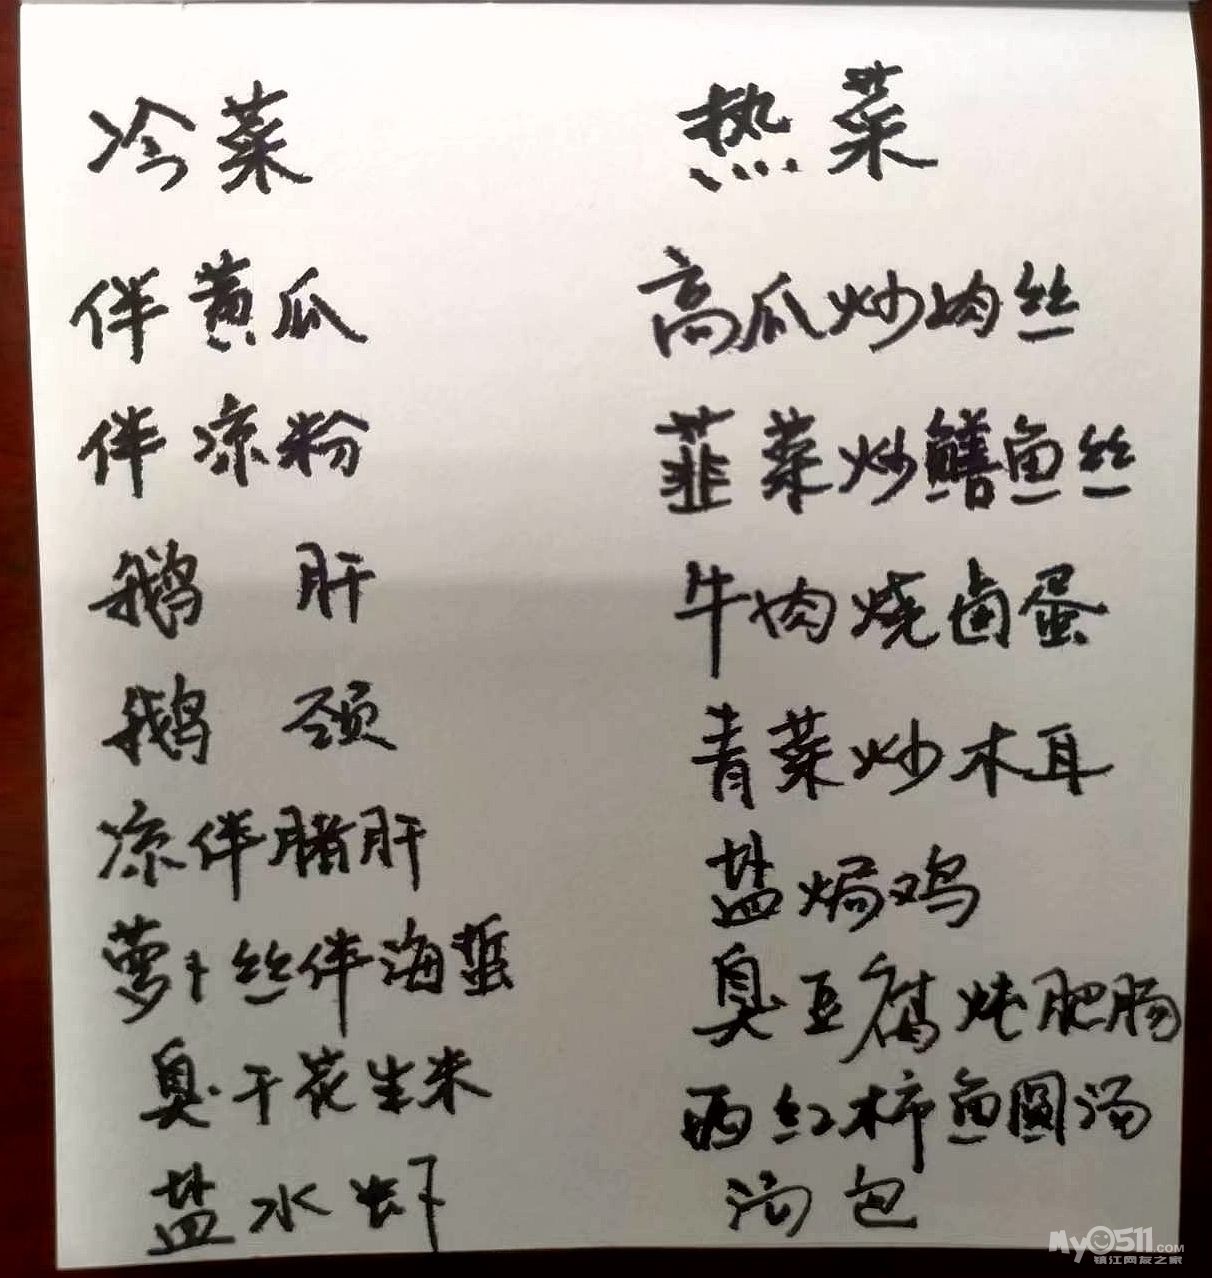 冷菜
伴黄瓜
伴凉粉
鹅肝
鹅颈
凉伴腊肝
萝卜丝伴海蜇
臭干花生米
盐水虾
热菜
高瓜炒肉丝
韮菜炒鳝鱼丝
牛肉烧卤蛋
青菜炒木耳
盐焗鸡
臭豆腐炖肥肠
西红柿鱼圆汤
汤包
My0511.COM
镇江网友之家